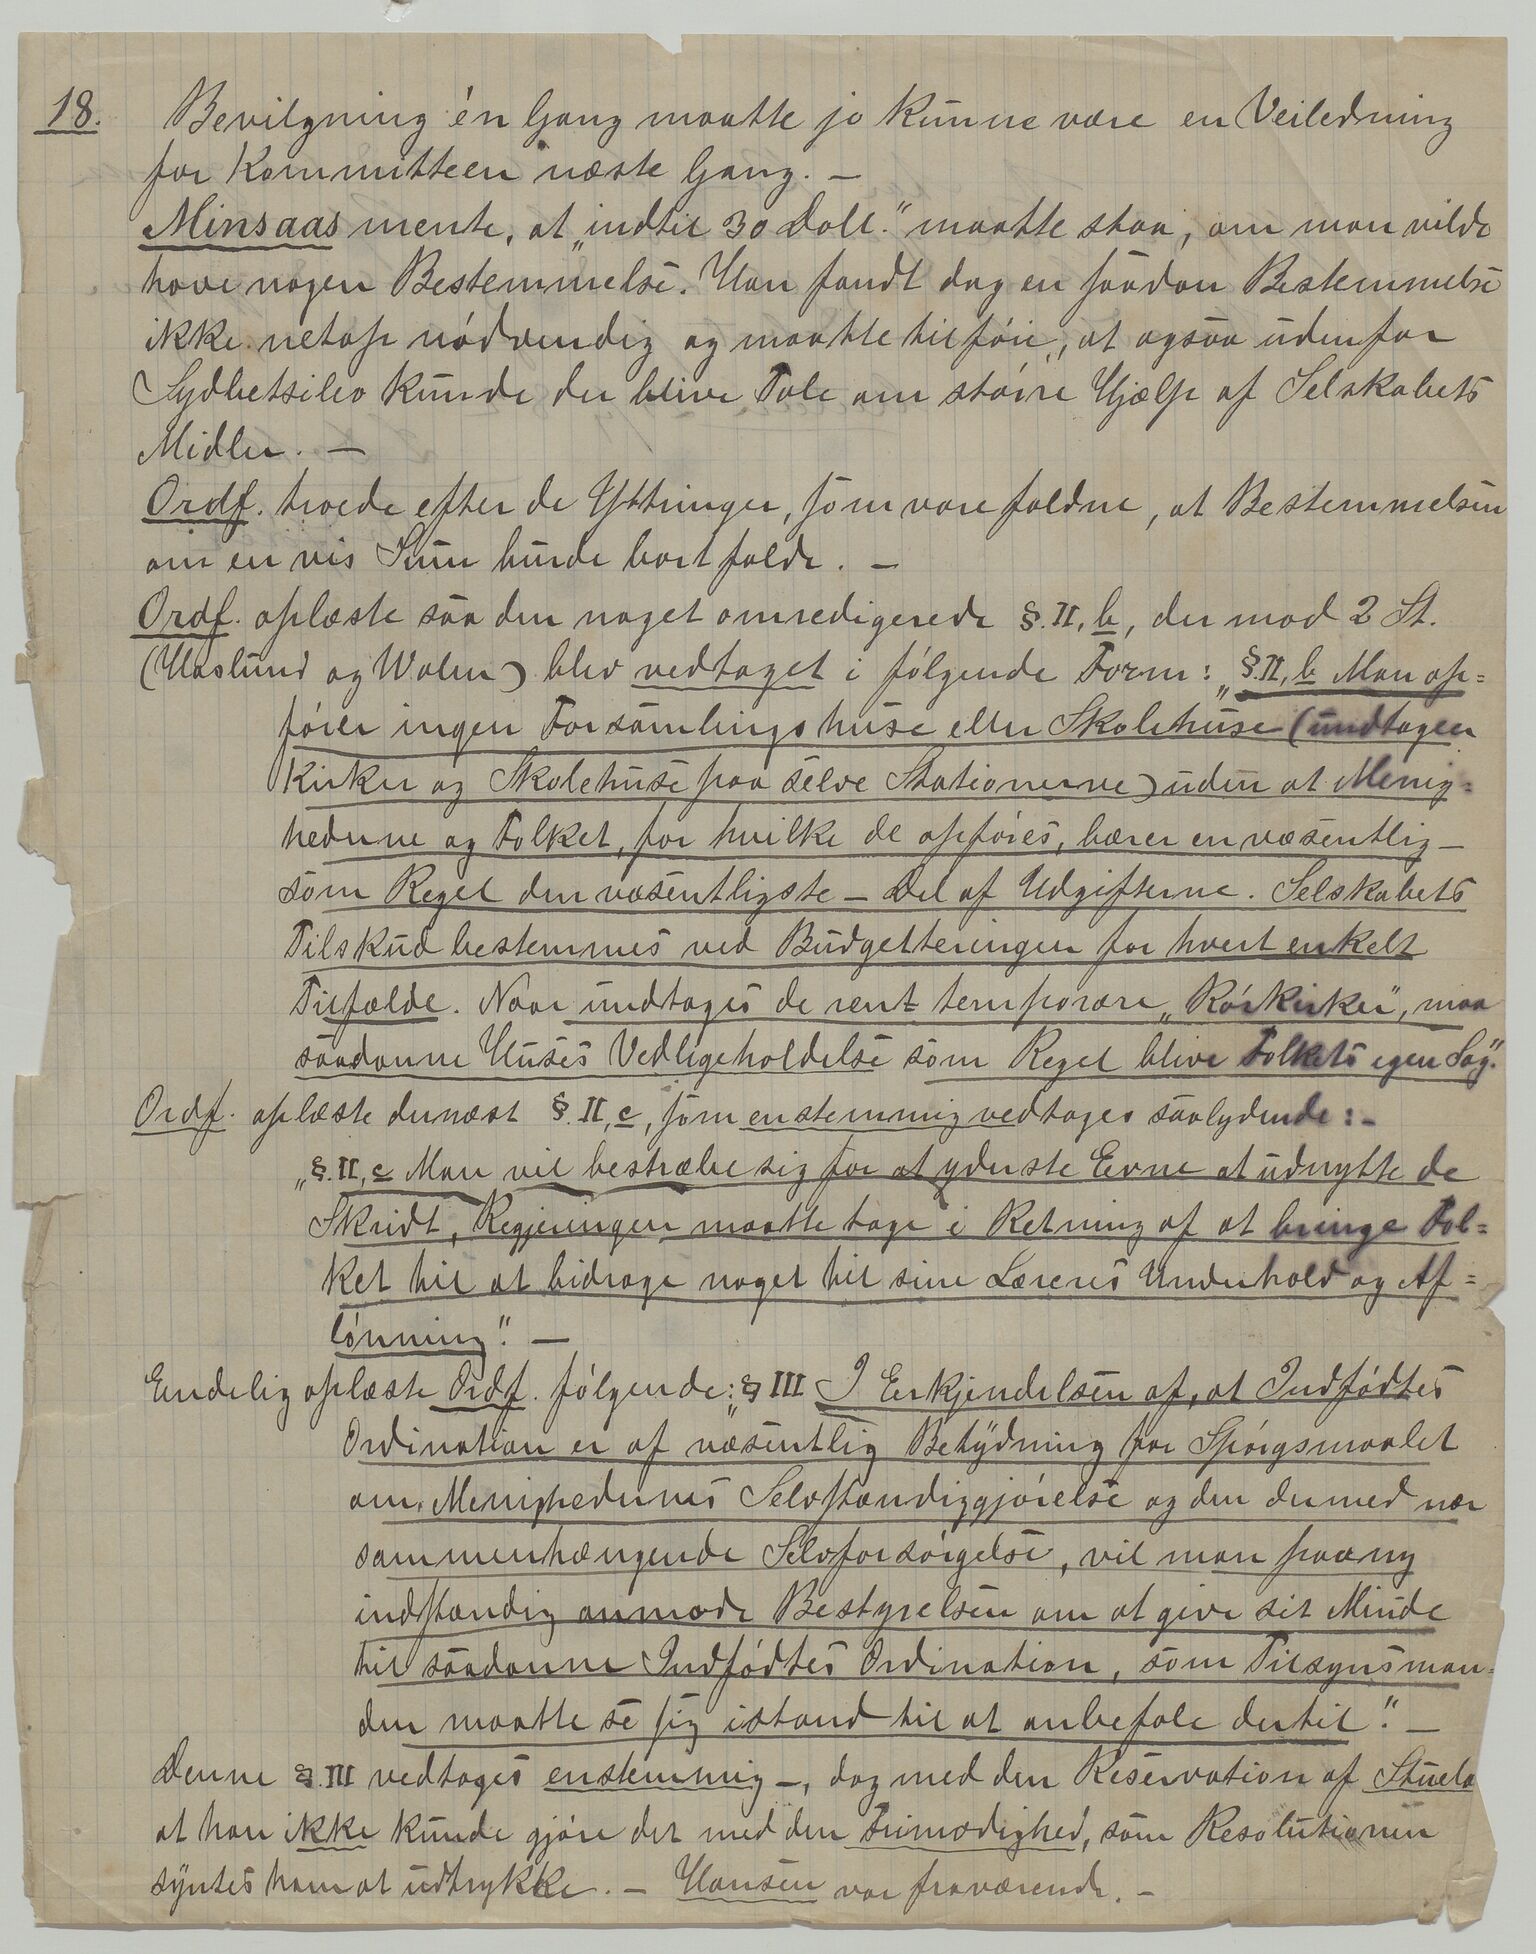 18. Bevilgning én Gang maatte jo kunne være en Veiledning
for Kommitteen næste Gang. —
Minsaas mente, at „indtil 30 Doll." maatte staa, om man vilde
have nogen Bestemmelse. Han fandt dog en saadan Bestemmelse
ikke netop nødvendig og maatte tilføie, at ogsaa udenfor
Sydbetsileo kunde der blive Tale om større Hjælp af Selskabets
Midler. —
Ordf. troede efter de Yttringer, som vare faldne, at Bestemmelsen
om en vis Sum burde bortfalde. —
Ordf. oplæste saa den noget omredigerede §.II, b, der mod 2 St.
(Haslund og Walen) blev vedtaget i følgende Form: „§.II, b Man op=
fører ingen Forsamlingshuse eller Skolehuse (undtagen
Kirker og Skolehuse paa selve Stationerne) uden at Menig=
hederne og Folket, for hvilke de opføres, bærer en væsentlig —
som Regel den væsentligste — Del af Udgifterne. Selskabets
Tilskud bestemmes ved Budgetteringen for hvert enkelt
Tilfælde. Naar undtages de rent temporære „Rørkirker", maa
saadanne Huses Vedligeholdelse som Regel blive Folkets egen Sag."
Ordf. oplæste dernæst §.II, c, som enstemmig vedtages saalydende: –
„§.II, c Man vil bestræbe sig for at yderste Evne at udnytte de
Skridt, Regjeringen maatte tage i Retning af at bringe Fol=
ket til at bidrage noget til sine Læreres Underhold og Af=
lønning". —
Endelig oplæste Ordf. følgende: „§ III I Erkjendelsen af, at Indfødtes
Ordination er af væsentlig Betydning for Spørgsmaalet
om Menighedernes Selvstændiggjørelse og den dermed nær
sammenhængende Selvforsørgelse, vil man paany
indstændig anmode Bestyrelsen om at give sit Minde
til saadanne Indfødtes Ordination, som Tilsynsman=
den maatte se sig istand til at anbefale dertil". —
Denne §.III vedtages enstemmig —, dog med den Reservation af Stueland
at han ikke kunde gjøre det med den Frimodighed, som Resolutionen
syntes ham at udtrykke. — Hansen var fraværende. —